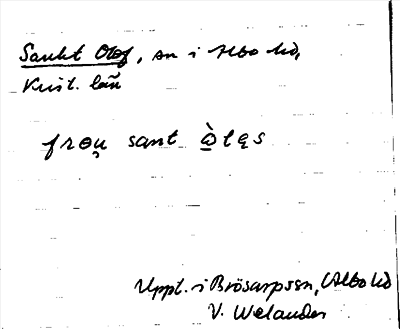 Sankt Olof, sn i Albo hd,
Krist. län
frøn̥ sant ò̲lęs
Uppt. i Brösarpssn, Albo hd
V. Welander